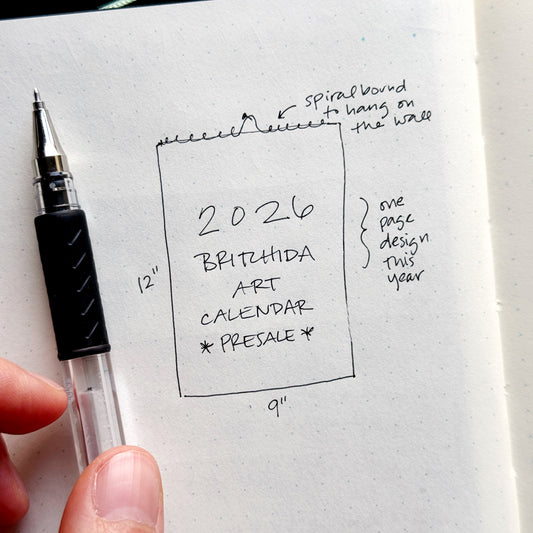 spiralbound
to hang on
the wall
2026
BRITCHIDA
ART
CALENDAR
* PRESALE *
one
page
design
this
year
12"
9"